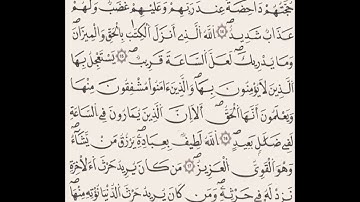 حُجَّتُهُمْ دَاحِضَةٌ عِندَ رَبِّهِمْ وَعَلَيْهِمْ غَضَبٌ وَلَهُمْ
عَذَابٌ شَدِيدٌ اللَّهُ الَّذِي أَنزَلَ الْكِتَٰبَ بِالْحَقِّ وَالْمِيزَانَ
وَمَا يُدْرِيكَ لَعَلَّ السَّاعَةَ قَرِيبٌ يَسْتَعْجِلُ بِهَا
الَّذِينَ لَا يُومِنُونَ بِهَا وَالَّذِينَ ءَامَنُوا مُشْفِقُونَ مِنْهَا
وَيَعْلَمُونَ أَنَّهَا الْحَقُّ أَلَا إِنَّ الَّذِينَ يُمَارُونَ فِي السَّاعَةِ
لَفِي ضَلَٰلٍ بَعِيدٍ اللَّهُ لَطِيفٌ بِعِبَادِهِ يَرْزُقُ مَن يَشَاءُ
وَهُوَ الْقَوِيُّ الْعَزِيزُ مَن كَانَ يُرِيدُ حَرْثَ الَاخِرَةِ
نَزِدْ لَهُ فِي حَرْثِهِ وَمَن كَانَ يُرِيدُ حَرْثَ الدُّنْيَا نُوتِهِ مِنْهَا